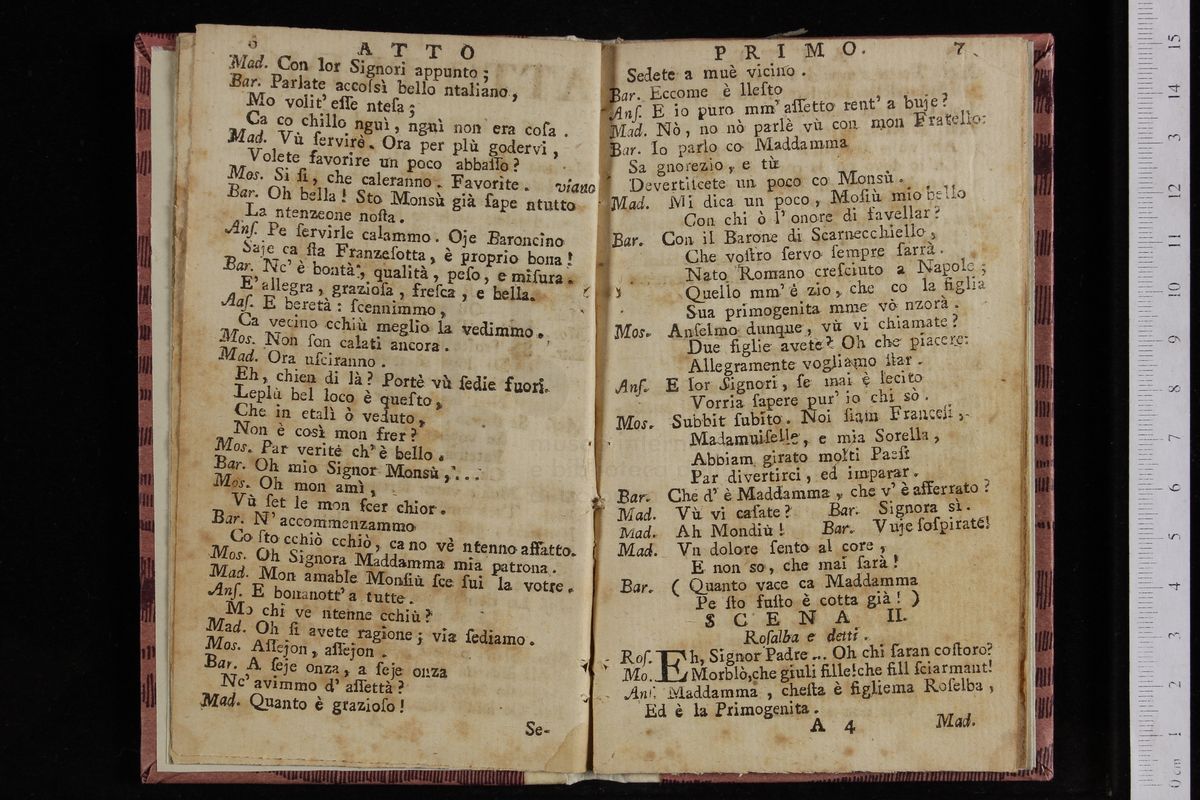 6 ATTO
Mad. Con lor Signori appunto;
Bar. Parlate accoſsì bello ntaliano,
Mo volit' eſſe nteſa;
Ca co chillo nguì, nguì non era coſa.
Mad. Vù ſervirè. Ora per plù godervi,
Volete favorire un poco abbaſſo?
Mos. Si ſi, che caleranno. Favorite. viano
Bar. Oh bella! Sto Monsù già ſape ntutto
La ntenzeone noſta.
Anſ. Pe ſervirle calammo. Oje Baroncino
Saje ca ſta Franzeſotta, è proprio bona!
Bar. Nc' è bontà, qualità, peſo, e miſura.
E' allegra, grazioſa, freſca, e bella.
Anſ. E beretà: ſcennimmo,
Ca vecino cchiù meglio la vedimmo.
Mos. Non ſon calati ancora.
Mad. Ora uſciranno.
Eh, chien di là? Portè vù ſedie fuori.
Leplù bel loco è queſto,
Che in etalì ò veduto,
Non è così mon frer?
Mos. Par veritè ch' è bello.
Bar. Oh mio Signor Monsù,...
Mos. Oh mon amì,
Vù ſet le mon ſcer chior.
Bar. N' accommenzammo
Co ſto cchiò cchiò, ca no vè ntenno affatto.
Mos. Oh Signora Maddamma mia patrona.
Mad. Mon amable Monſiù ſce ſui la votre.
Anſ. E bonanott' a tutte.
Mo chi ve ntenne cchiù?
Mad. Oh ſi avete ragione; via ſediamo.
Mos. Aſſejon, aſſejon.
Bar. A ſeje onza, a ſeje onza
Nc' avimmo d' aſſettà?
Mad. Quanto è grazioſo!
Se-
PRIMO. 7
Sedete a muè vicino.
Bar. Eccome è lleſto
Anſ. E io puro mm' aſſetto rent' a buje?
Mad. Nò, no nò parlè vù con mon Fratello:
Bar. Io parlo co Maddamma
Sa gnorezio, e tù
Devertitcete un poco co Monsù.
Mad. Mi dica un poco, Moſiù mio bello
Con chi ò l' onore di favellar?
Bar. Con il Barone di Scarnecchiello,
Che voſtro ſervo ſempre ſarrà.
Nato Romano creſciuto a Napole;
Quello mm' è zio, che co la figlia
Sua primogenita mme vò nzorà.
Mos. Anſelmo dunque, vù vi chiamate?
Due figlie avete? Oh che piacere:
Allegramente vogliamo ſtar.
Anſ. E lor Signori, ſe mai è lecito
Vorria ſapere pur' io chi sò.
Mos. Subbit ſubito. Noi ſiam Franceſi,
Madamuiſelle, e mia Sorella,
Abbiam girato molti Paeſi
Par divertirci, ed imparar.
Bar. Che d' è Maddamma, che v' è afferrato?
Mad. Vù vi caſate? Bar. Signora sì.
Mad. Ah Mondiù! Bar. Vuje ſoſpirate!
Mad. Vn dolore ſento al core,
E non so, che mai ſarà!
Bar. (Quanto vace ca Maddamma
Pe ſto fuſto è cotta già!)
SCENA II.
Roſalba e detti.
Roſ. Eh, Signor Padre... Oh chi ſaran coſtoro?
Mo. Morblò, che giuli fille! che fill ſciarmant!
Anſ. Maddamma, cheſta è figliema Roſelba,
Ed è la Primogenita.
A 4 Mad.